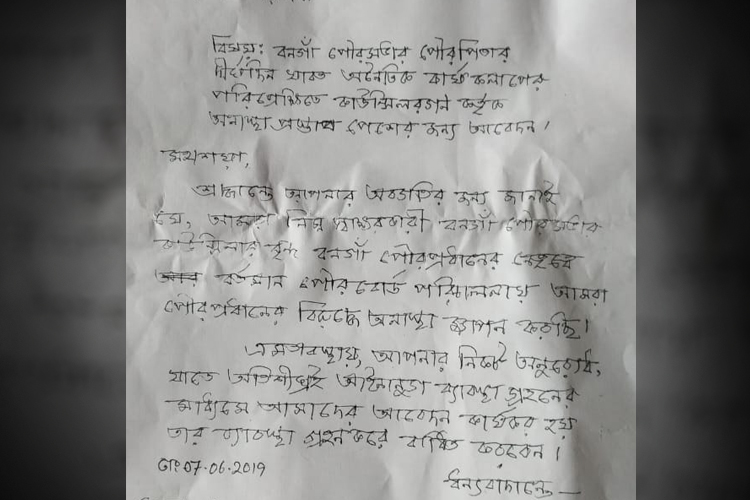 বিষয়: বনগাঁ পৌরসভার পৌরপিতার
দীর্ঘদিন যাবত অনৈতিক কার্য কলাপের
পরিপ্রেক্ষিতে কাউন্সিলরগন কর্তৃক
অনাস্থা প্রস্তাব পেশের জন্য আবেদন।
মহাশয়া,
শ্রদ্ধান্তে আপনার অবগতির জন্য জানাই
যে, আমরা নিম্ন স্বাক্ষরকারী বনগাঁ পৌরসভার
কাউন্সিলার বৃন্দ বনগাঁ পৌরপ্রধানের
বর্তমান পৌরবোর্ড পরিচালনায় আমরা
পৌরপ্রধানের বিরুদ্ধে অনাস্থা জ্ঞাপন করছি।
এমতাবস্থায়, আপনার নিকট অনুরোধ,
যাতে অতিশীঘ্রই আইনানুগ ব্যাবস্থা গ্রহনের
মাধ্যমে আমাদের আবেদন কার্যকর হয়
তার ব্যাবস্থা গ্রহন করে বাধিত করবেন।
তাং 07.06.2019
ধন্যবাদান্তে —